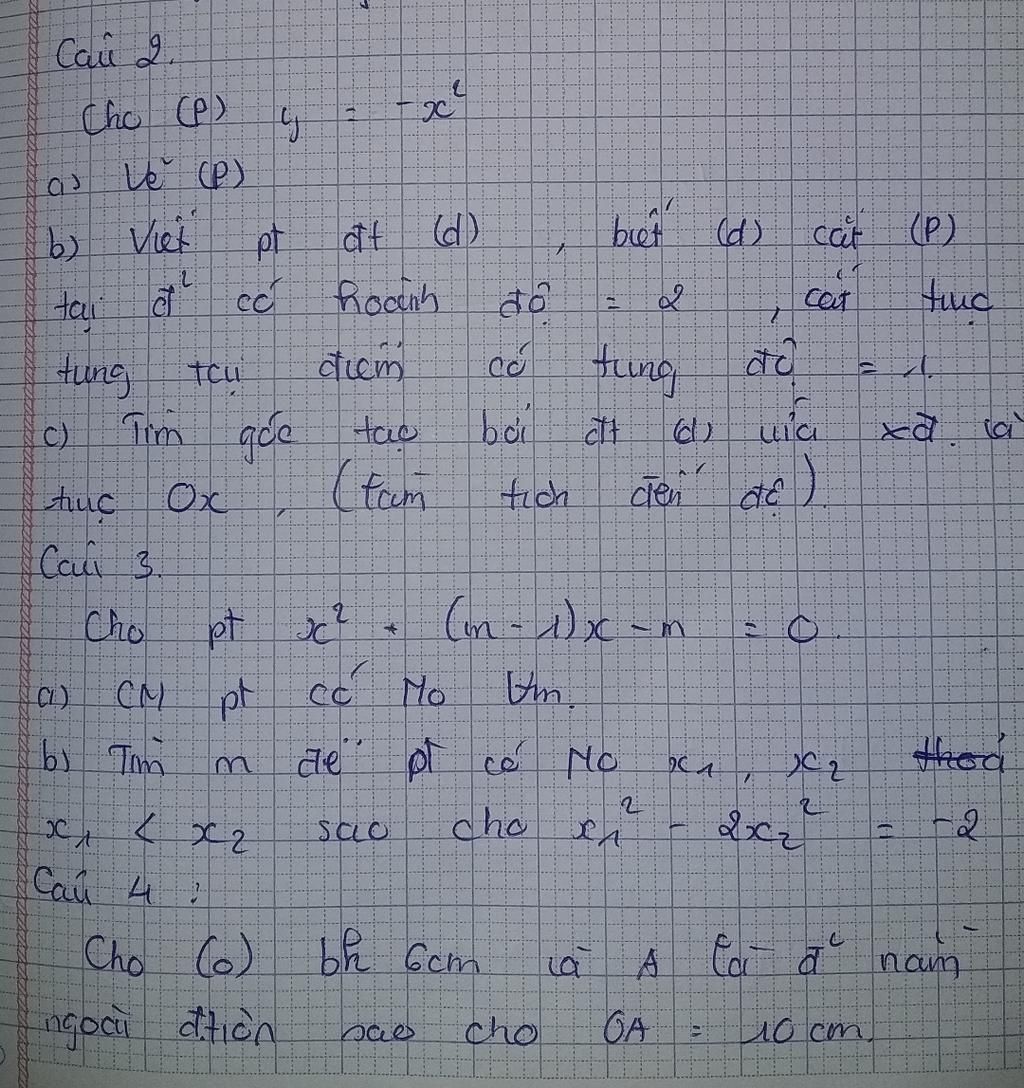 Câu 2.
Cho (P) y = -x²
a) Vẽ (P)
b) Viết pt đt (d), biết (d) cắt (P)
tại đ² có hoành độ = 2, cắt trục
tung tại điểm có tung độ = 1.
c) Tìm góc tạo bởi đt (d) vừa xđ và
trục Ox, (làm tích đến độ)
Câu 3.
Cho pt x² + (m - 1)x - m = 0.
a) CM pt có No ∀m.
b) Tìm m để pt có No x₁, x₂ thoả
x₁ < x₂ sao cho x₁² - 2x₂² = -2
Câu 4:
Cho (O) bk 6cm và A là đ² nằm
ngoài đtròn sao cho OA = 10 cm.